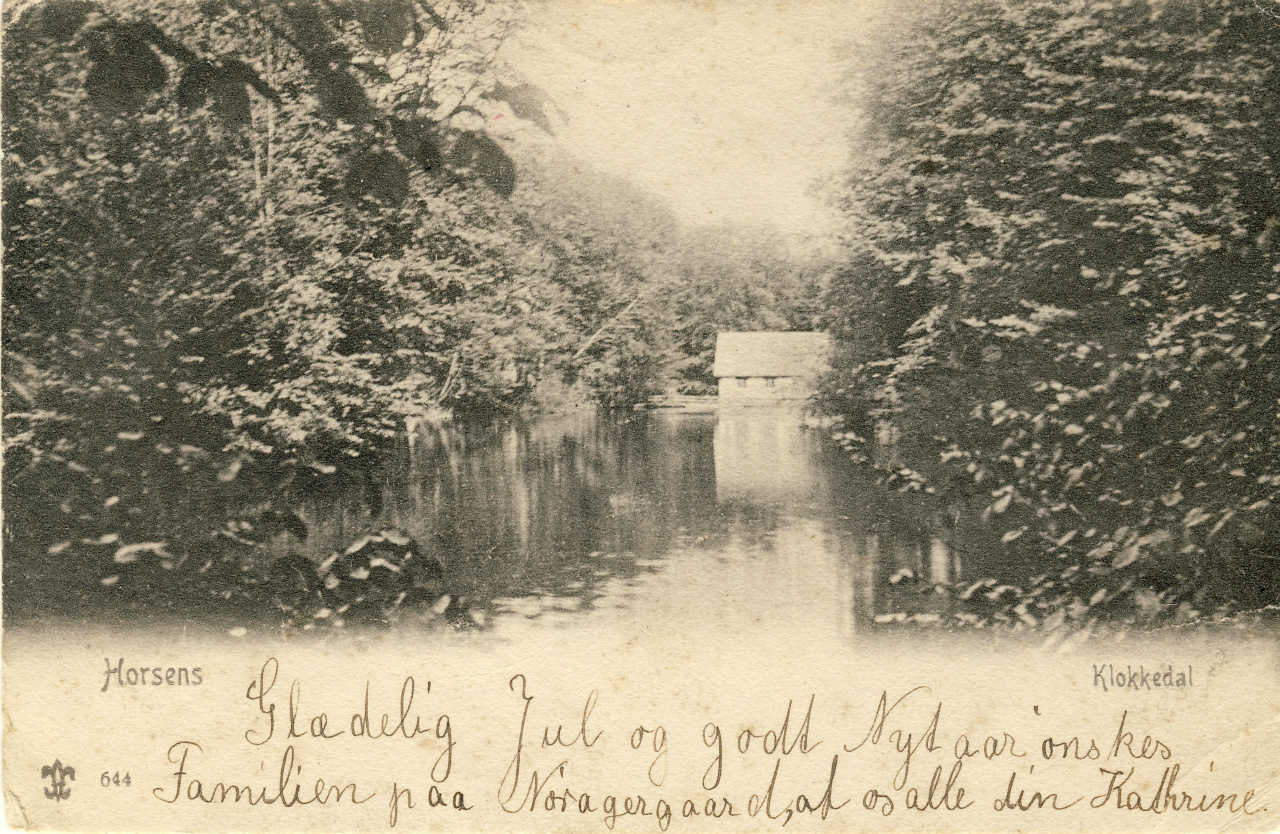 Horsens
Klokkedal
Glædelig Jul og godt Nytaar ønskes
644
Familien paa Nøragergaard, af os alle din Kathrine.